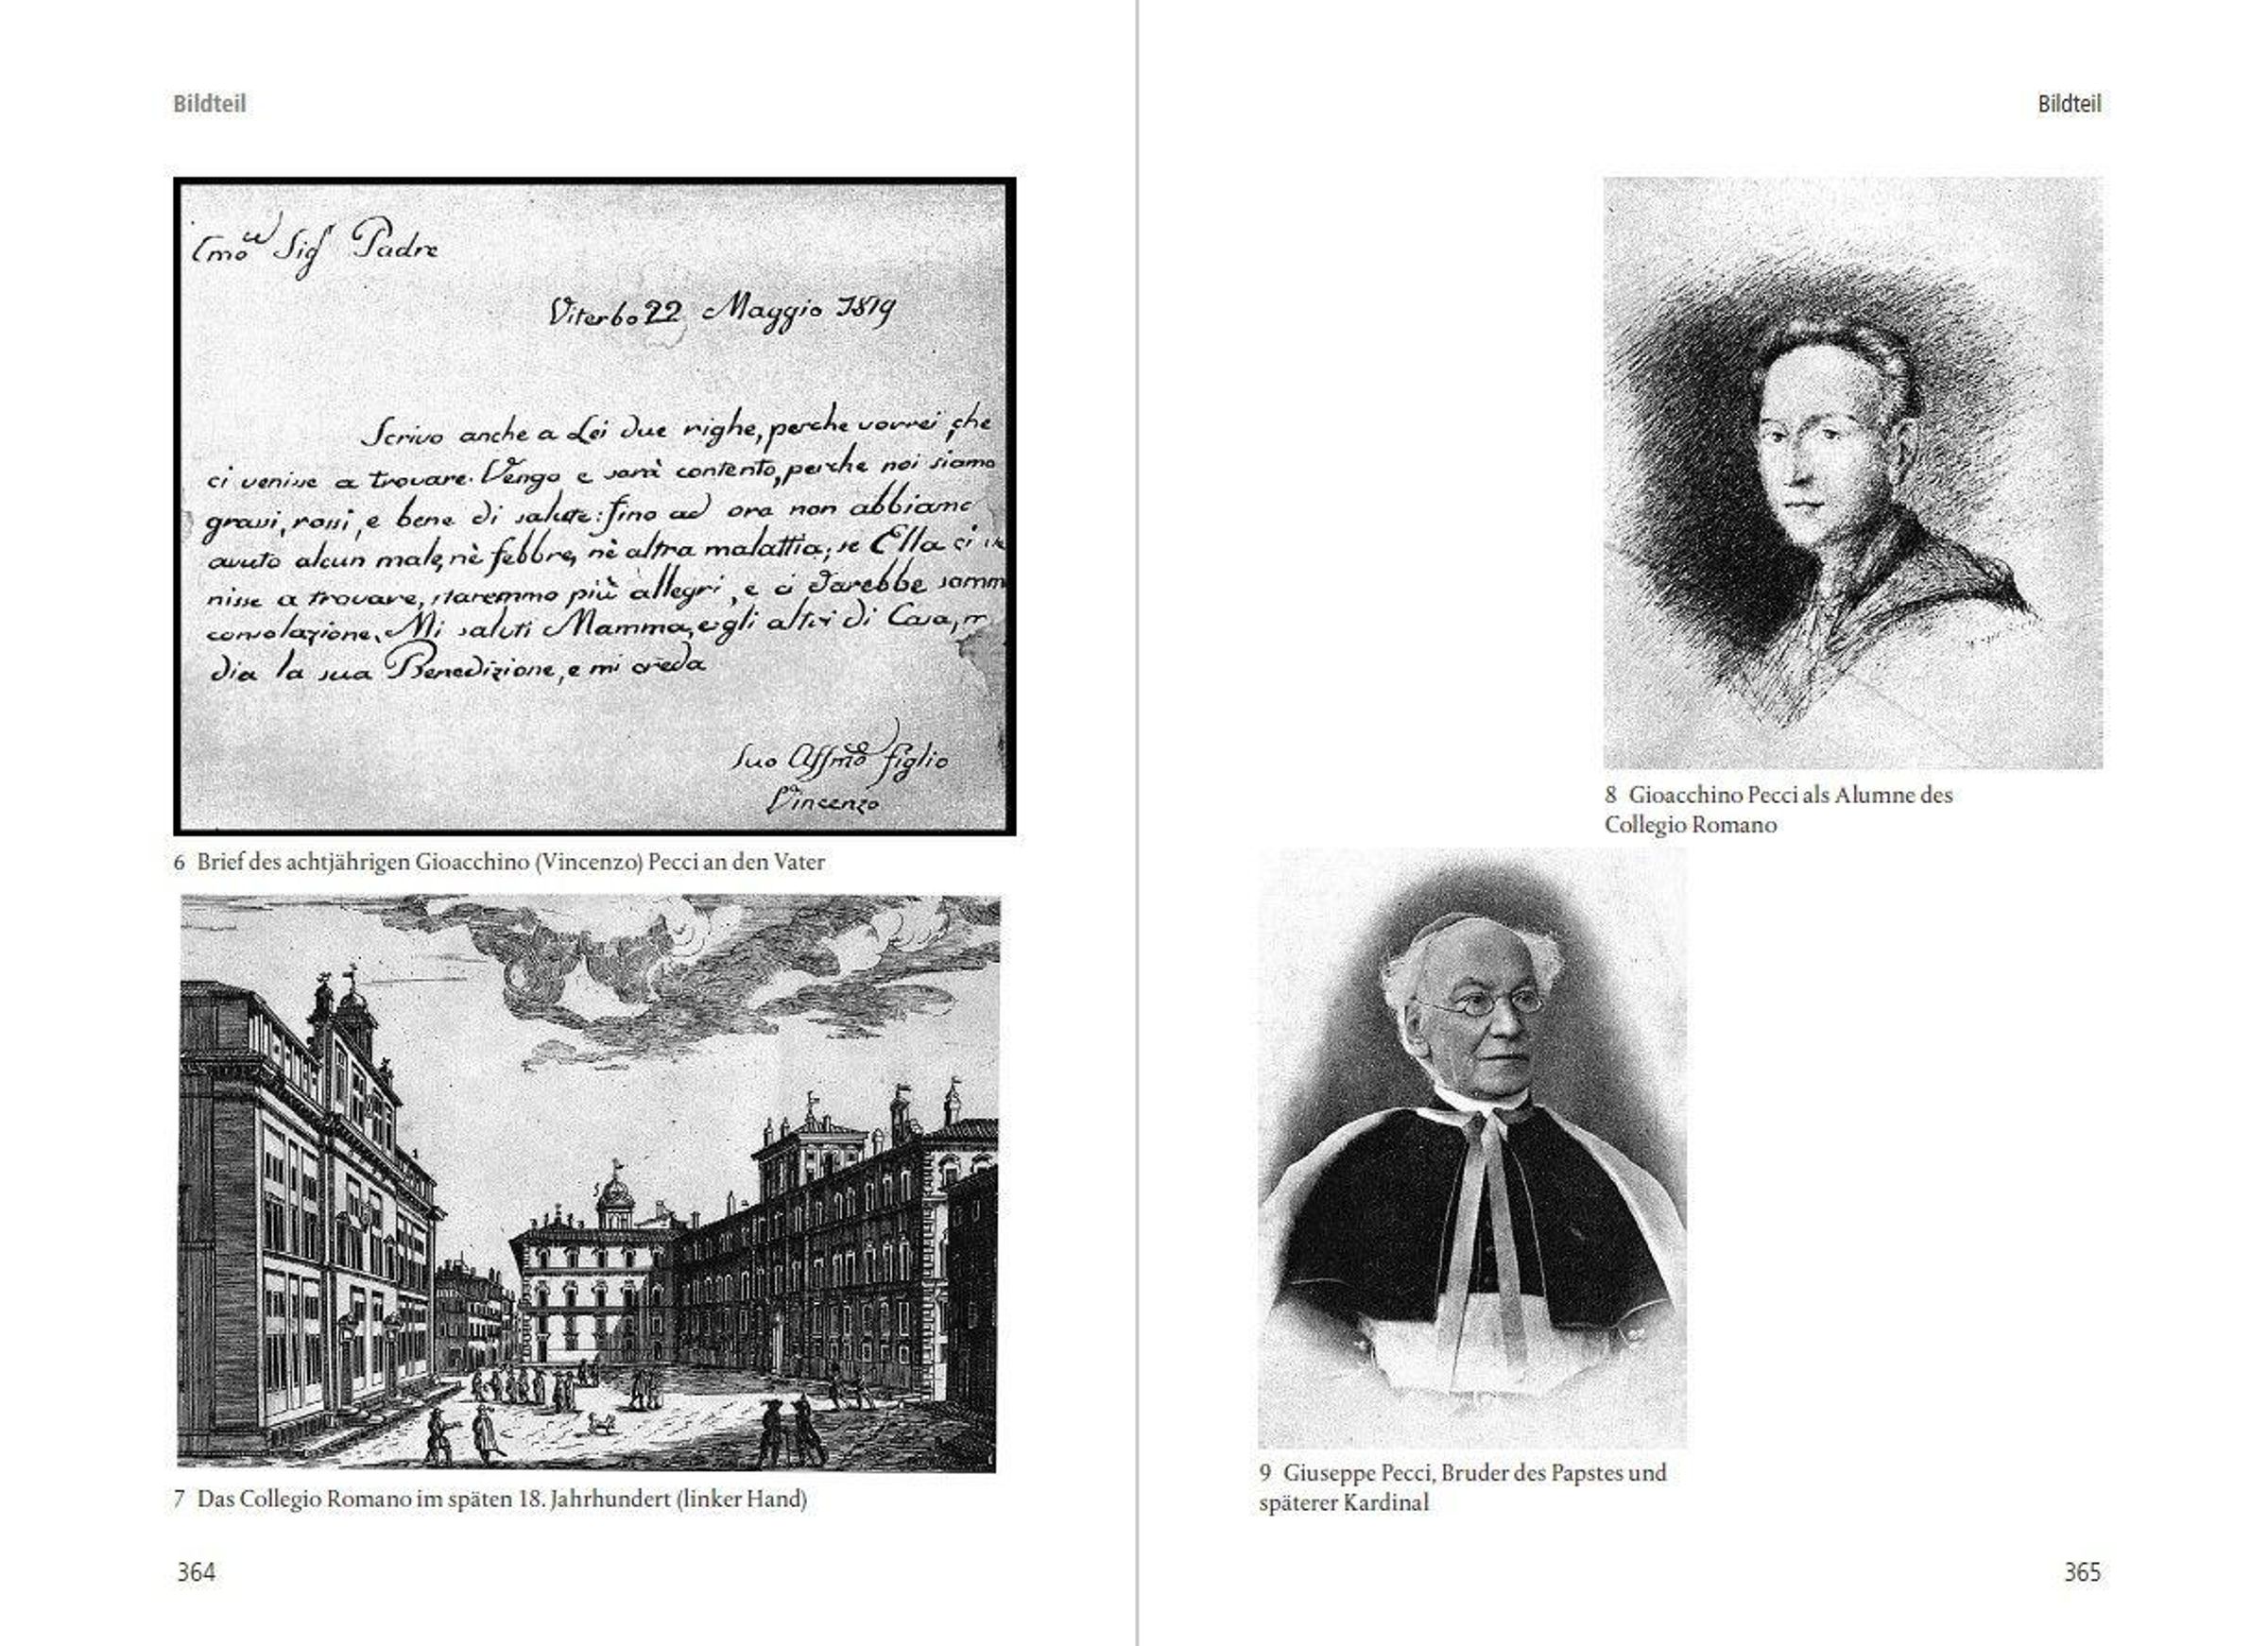 Bildteil
Cmo Sigr Padre
Viterbo 22 Maggio 1819
Scrivo anche a Lei due righe, perche vorrei, che
ci venisse a trovare. Venga e sarà contento, perche noi siamo
grassi, rossi, e bene di salute: fino ad ora non abbiamo
avuto alcun male, nè febbre, nè altra malattia; se Ella ci ve
nisse a trovare, staremmo più allegri, e ci darebbe somm
consolazione. Mi saluti Mamma, e gli altri di Casa, m
dia la sua Benedizione, e mi creda
Suo Affmo figlio
Vincenzo
6 Brief des achtjährigen Gioacchino (Vincenzo) Pecci an den Vater
7 Das Collegio Romano im späten 18. Jahrhundert (linker Hand)
364
Bildteil
8 Gioacchino Pecci als Alumne des
Collegio Romano
9 Giuseppe Pecci, Bruder des Papstes und
späterer Kardinal
365